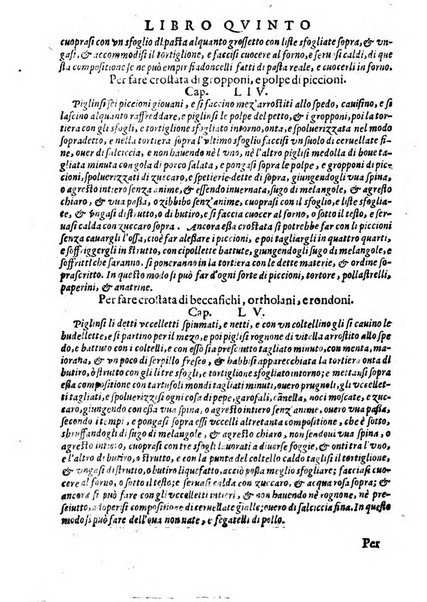 LIBRO QVINTO
cuoprasi con vn sfoglio di pasta alquanto grossetto con liste sfogliate sopra, & vn-
gasi, & accommodisi il tortiglione, & faccisi cuocer al forno, & seruisi caldi, di que
sta compositione se ne può empir si adoncelli fatti di pasta reale, e cuocerli in forno.
Per fare crostata di gropponi, e polpe di piccioni.
Cap. LIV.
Piglinsi sei piccioni giouani, e si faccino mez'arrostiti allo spedo, cauisino, e si
lascino alquanto raffreddare, e piglisi le polpe del petto, & i gropponi, poi habbiasi la tor-
tiera con gli sfogli, e tortiglione sfogliato intorno, onta, e spoluerizzata nel modo
sopradetto, e nella tortiera sopra l'vltimo sfoglio facciasi vn suolo di ceruellate fi-
ne, ouer di salciccia, e non hauendo nè l'vno, nè l'altro piglisi medolla di boue ta-
gliata minuta con gola di porco salata, e pongasi sopra la compositione i piccioni
cauisini, spoluerizzati di zuccaro, e spetierie dette di sopra, giungendoui vua spina,
o agresto intiero senza anime, & essendo inuernata, sugo di melangole, & agresto
chiaro, & vua pasta, o zibibbo senz'anime, cuoprasi con lo sfoglio, e liste sfoglia-
te, & vngasi di strutto, o di butiro, e si faccia cuocer al forno, o sotto il testo, e ser-
uasi calda con zuccaro sopra. Ancora essa crostata si potrebbe far con li piccioni
senza cauargli l'ossa, cioè far alessare i piccioni, e tagliargli in quattro quarti, e
soffriggendogli in strutto, con cipollette battute, giungendoui sugo di melangole, e
soffritti che saranno, si poneranno in la tortiera con le dette materie, & ordine so-
prascritto. In questo modo si può far d'ogni sorte di piccioni, tortore, pollastrelli,
paperini, & anatrine.
Per fare crostata di beccafichi, ortholani, e rondoni.
Cap. LV.
Piglinsi li detti vccelletti spiumati, e netti, e con vn coltellino gli si cauino le
budellette, e si partino per il mezo, e poi piglisi rognone di vitella arrostito allo spe-
do, e battuto con i coltelli, e con esso si ponga presciutto tagliato minuto, con menta, ma-
iorana, & vn poco di serpillo fresco, & habbiasi apparecchiata la tortiera onta di
butiro, ò strutto con gli tre sfogli, e tortiglione sfogliato intorno; e mettasi sopra
essa compositione con tartufoli mondi tagliati minuti, ouero prugnoli, gli vccellet-
ti tagliati, e spoluerizzati, ogni cosa di pepe, garofali, cannella, noci moscate, e zuc-
caro, giungendo con essa vua spina, o agresto intiero senz'anime, ouero vua passa,
secondo i tempi, e pongasi sopra essi vccelli altretanta compositione, che è sotto,
sbruffandogli di sugo di melangole, & agresto chiaro, non essendoui vua spina, o
agresto intiero, cuoprasi con tre sfogli lauorati a diuerse foggie, onti tra l'vno
e l'altro di butiro, o strutto, e con la punta del coltello caldo taglisi il tortiglione,
& vngasi di strutto, o butiro liquefatto, acciò possa meglio sfogliare; facciasi cuoce
re al forno, o sotto il testo, e seruasi calda con zuccaro, & acqua rosa sopra; &
ancora si può fare con gli vccelletti intieri, & non hauendo nè rognone, nè pre-
sciutto, adoperisi compositione di ceruellate gialle; ouero di salciccia fina. In questo
modo si può fare dell'oua non nate, e fegatelli di pollo.
Per